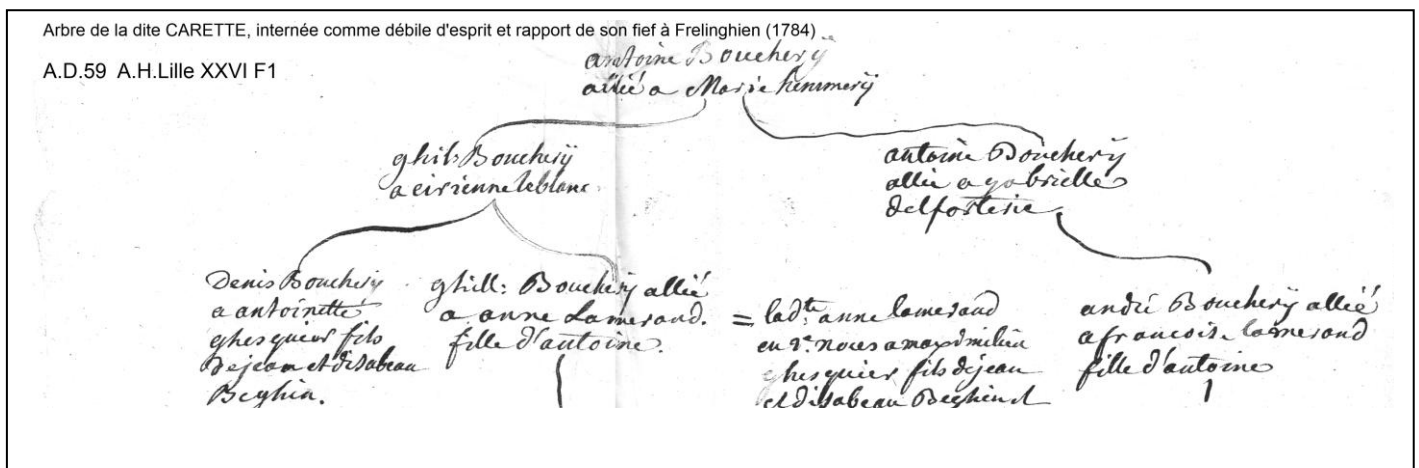 Arbre de la dite CARETTE, internée comme débile d'esprit et rapport de son fief à Frelinghien (1784)
A.D.59 A.H.Lille XXVI F1
antoine Boucherÿ
allié a Marie hemmerÿ
ghil: Boucherÿ
a leblanc
antoine Boucherÿ
allié a gabrielle
delforterie
Denis Boucherÿ
a antoinette
ghesquier fils
dejean et disabeau
Beghin.
ghill: Boucherÿ allié
a anne Lamerand.
fille d'antoine.
= ladte. anne lamerand
en 2e. noces a maximilien
ghesquier fils dejean
et disabeau Beghin et
andré Boucherÿ allié
a francoise lamerand
fille d'antoine